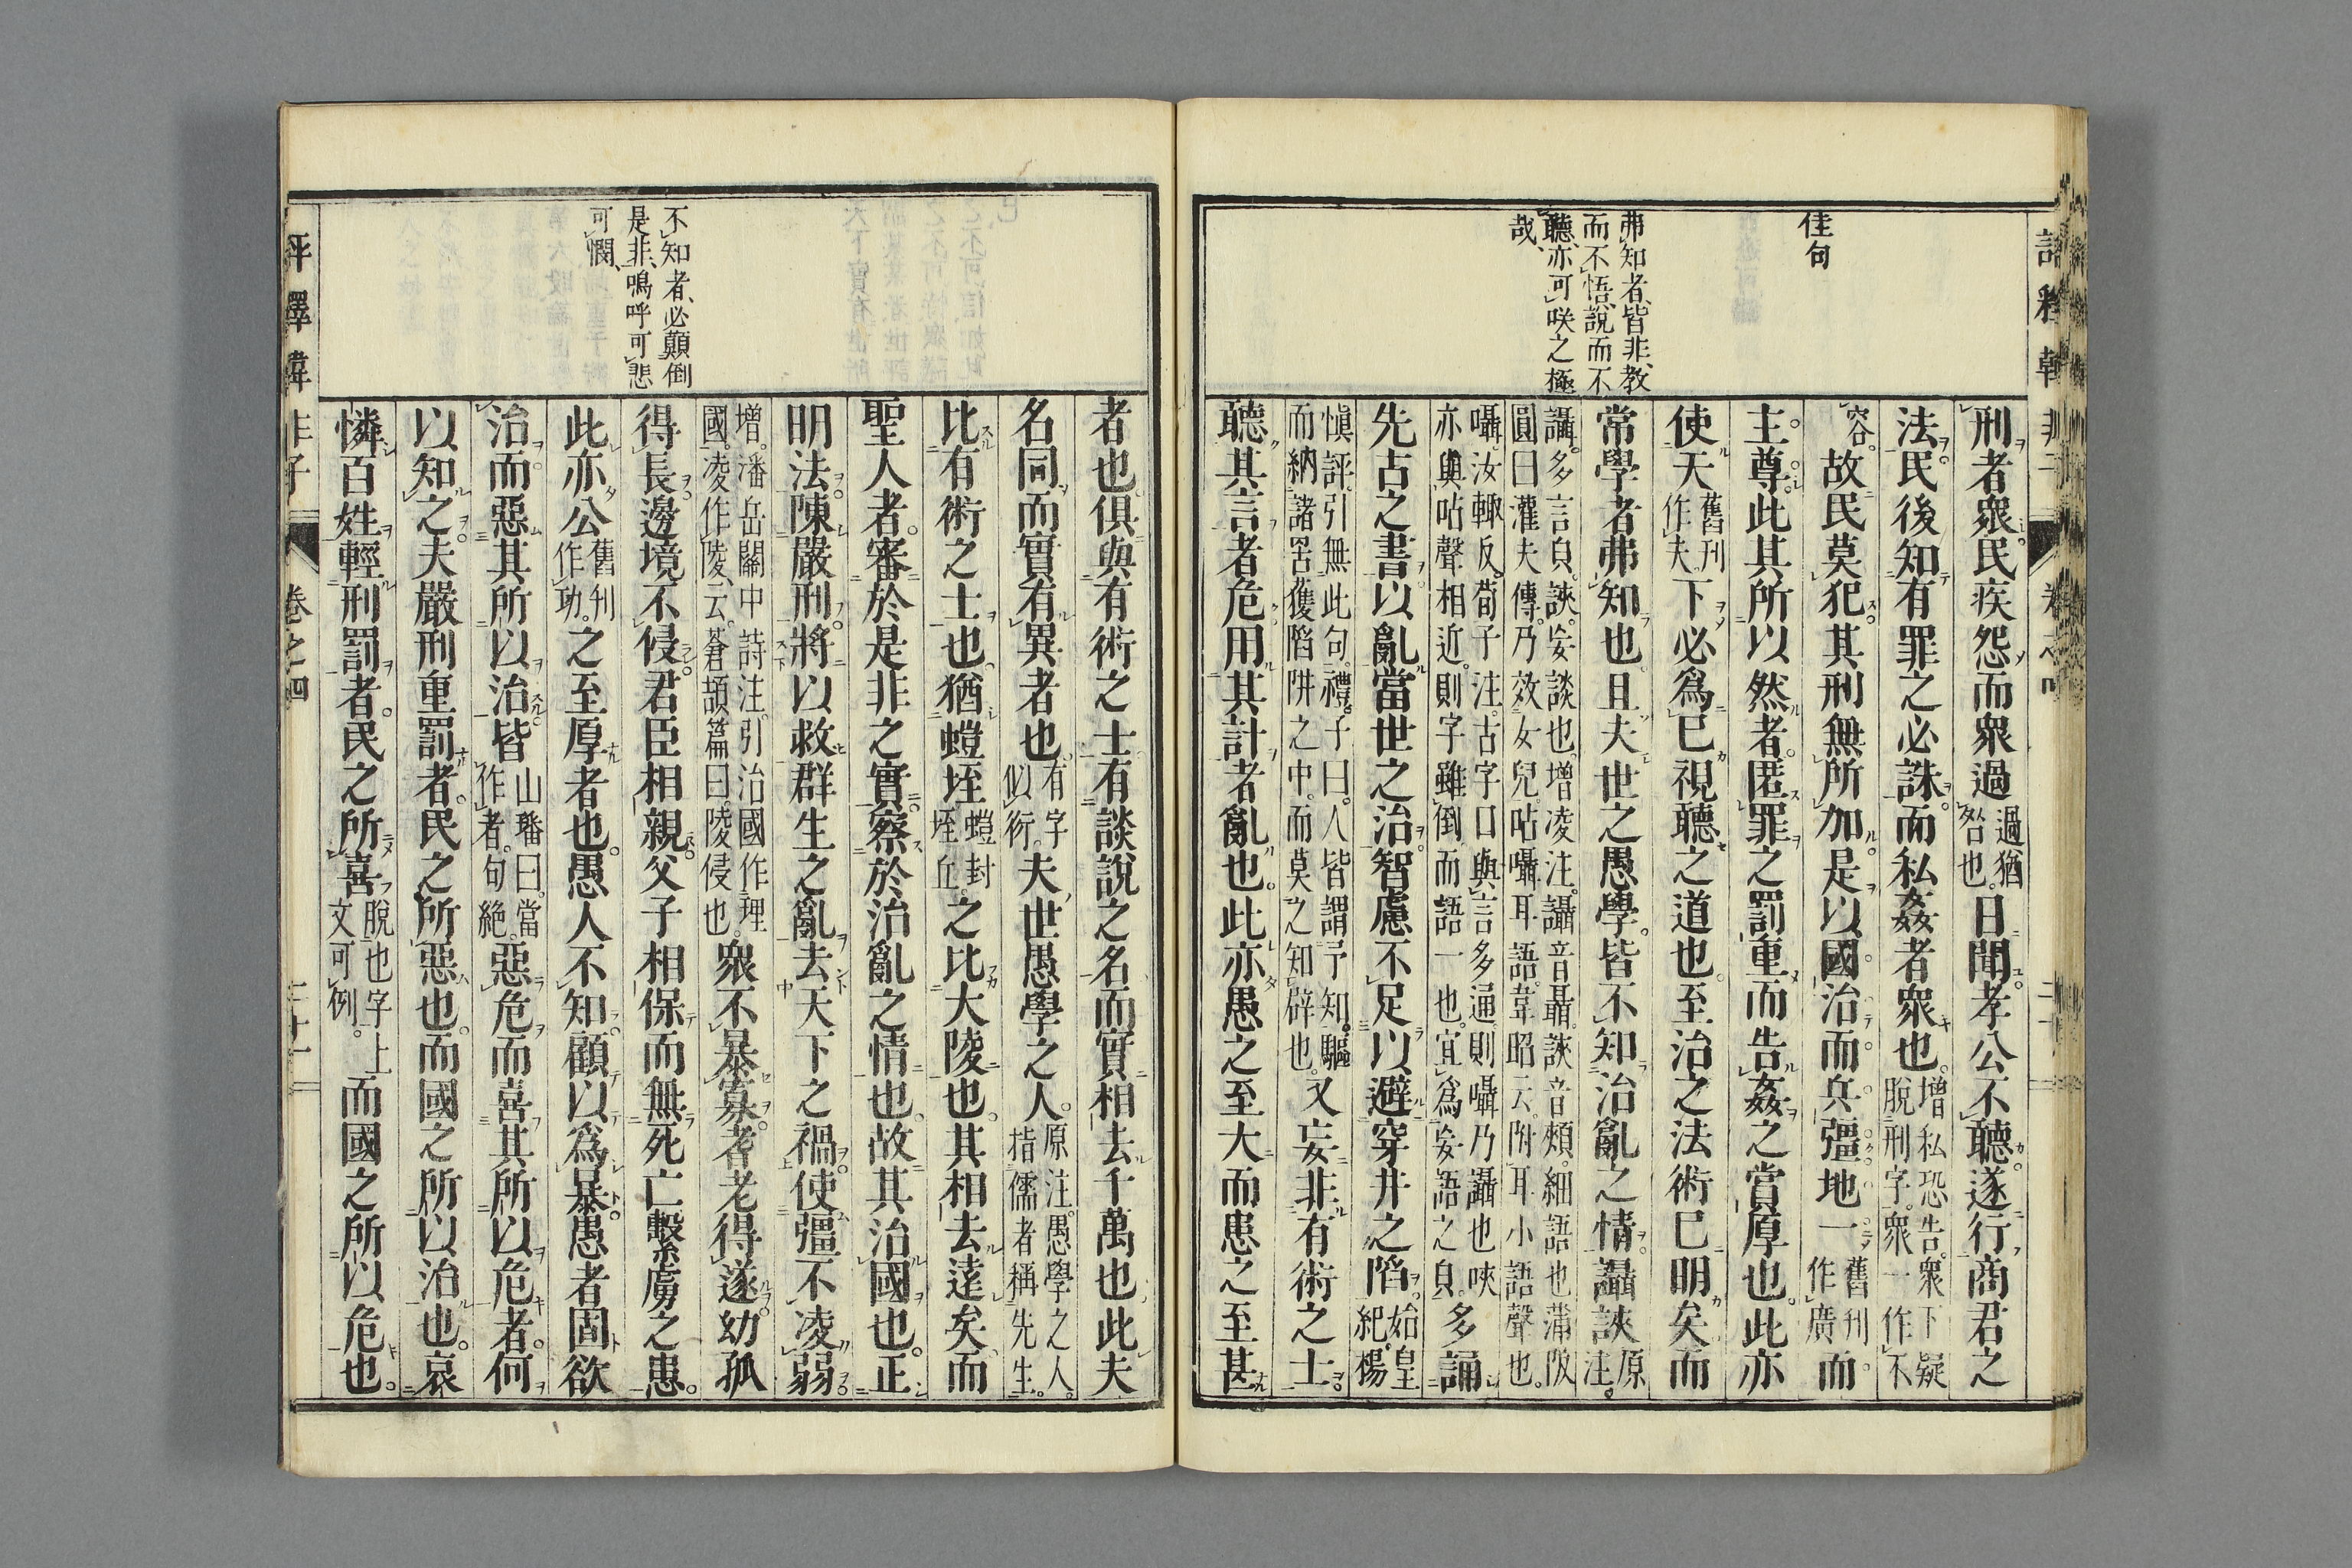 佳句
弗知者、皆非、教
而不悟、說而不
聽、亦可咲之極
哉、
刑者衆。民疾怨而衆過過猶咎也。日聞。孝公不聽。遂行商君之
法。民後知有罪之必誅。而私姦者衆也。增私恐告。衆下疑脫刑字。衆一作不
容。故民莫犯。其刑無所加。是以國治而兵彊。地一舊刊作廣而
主尊。此其所以然者。匿罪之罰重而告姦之賞厚也。此亦
使天舊刊作夫下必爲己視聽之道也。至治之法術已明矣。而
常學者弗知也。且夫世之愚學。皆不知治亂之情。讘𧧝原注。
讘。多言㒵。𧧝。妄談也。增凌注。讘音聶。𧧝音頰。細語也蒲阪
圓曰灌夫傳。乃效女兒。呫囁耳語。韋昭云。附耳小語聲也。
囁汝輙反。荀子注。古字口與言多通。則囁乃讘也唊
亦與呫聲相近。則字雖倒而語一也。宜爲妄語之㒵。多誦
先古之書。以亂當世之治。智慮不足以避穽井之陷。始皇紀。楊
愼評引無此句。禮。子曰。人皆謂予知。驅
而納諸罟擭陷阱之中。而莫之知辟也。又妄非有術之士。
聽其言者危。用其計者亂也。此亦愚之至大而患之至甚
不知者、必顚倒
是非、嗚呼可悲
可憫、
者也。俱與有術之士。有談說之名。而實相去千萬也。此夫
名同而實有異者也。有字似衍。夫世愚學之人。原注。愚學之人。指儒者稱先生。
比有術之士也。猶螘垤螘封垤丘。之比大陵也。其相去遠矣。而
聖人者。審於是非之實。察於治亂之情也。故其治國也。正
明法。陳嚴刑。將以救群生之亂。去天下之禍。使彊不凌弱。
增。潘岳關中詩注。引治國作理國。凌作陵、云。蒼頡篇曰。陵侵也。衆不暴寡。耆老得遂。幼孤
得長。邊境不侵。君臣相親。父子相保。而無死亡繫虜之患。
此亦公舊刊作功。之至厚者也。愚人不知。顧以爲暴。愚者固欲
治。而惡其所以治。皆山璠曰。當作者。句絶。惡危。而喜其所以危者。何
以知之。夫嚴刑重罰者。民之所惡也。而國之所以治也。哀
憐百姓輕刑罰者。民之所喜脫也字上文可例。而國之所以危也。
評釋韓非子　卷之四